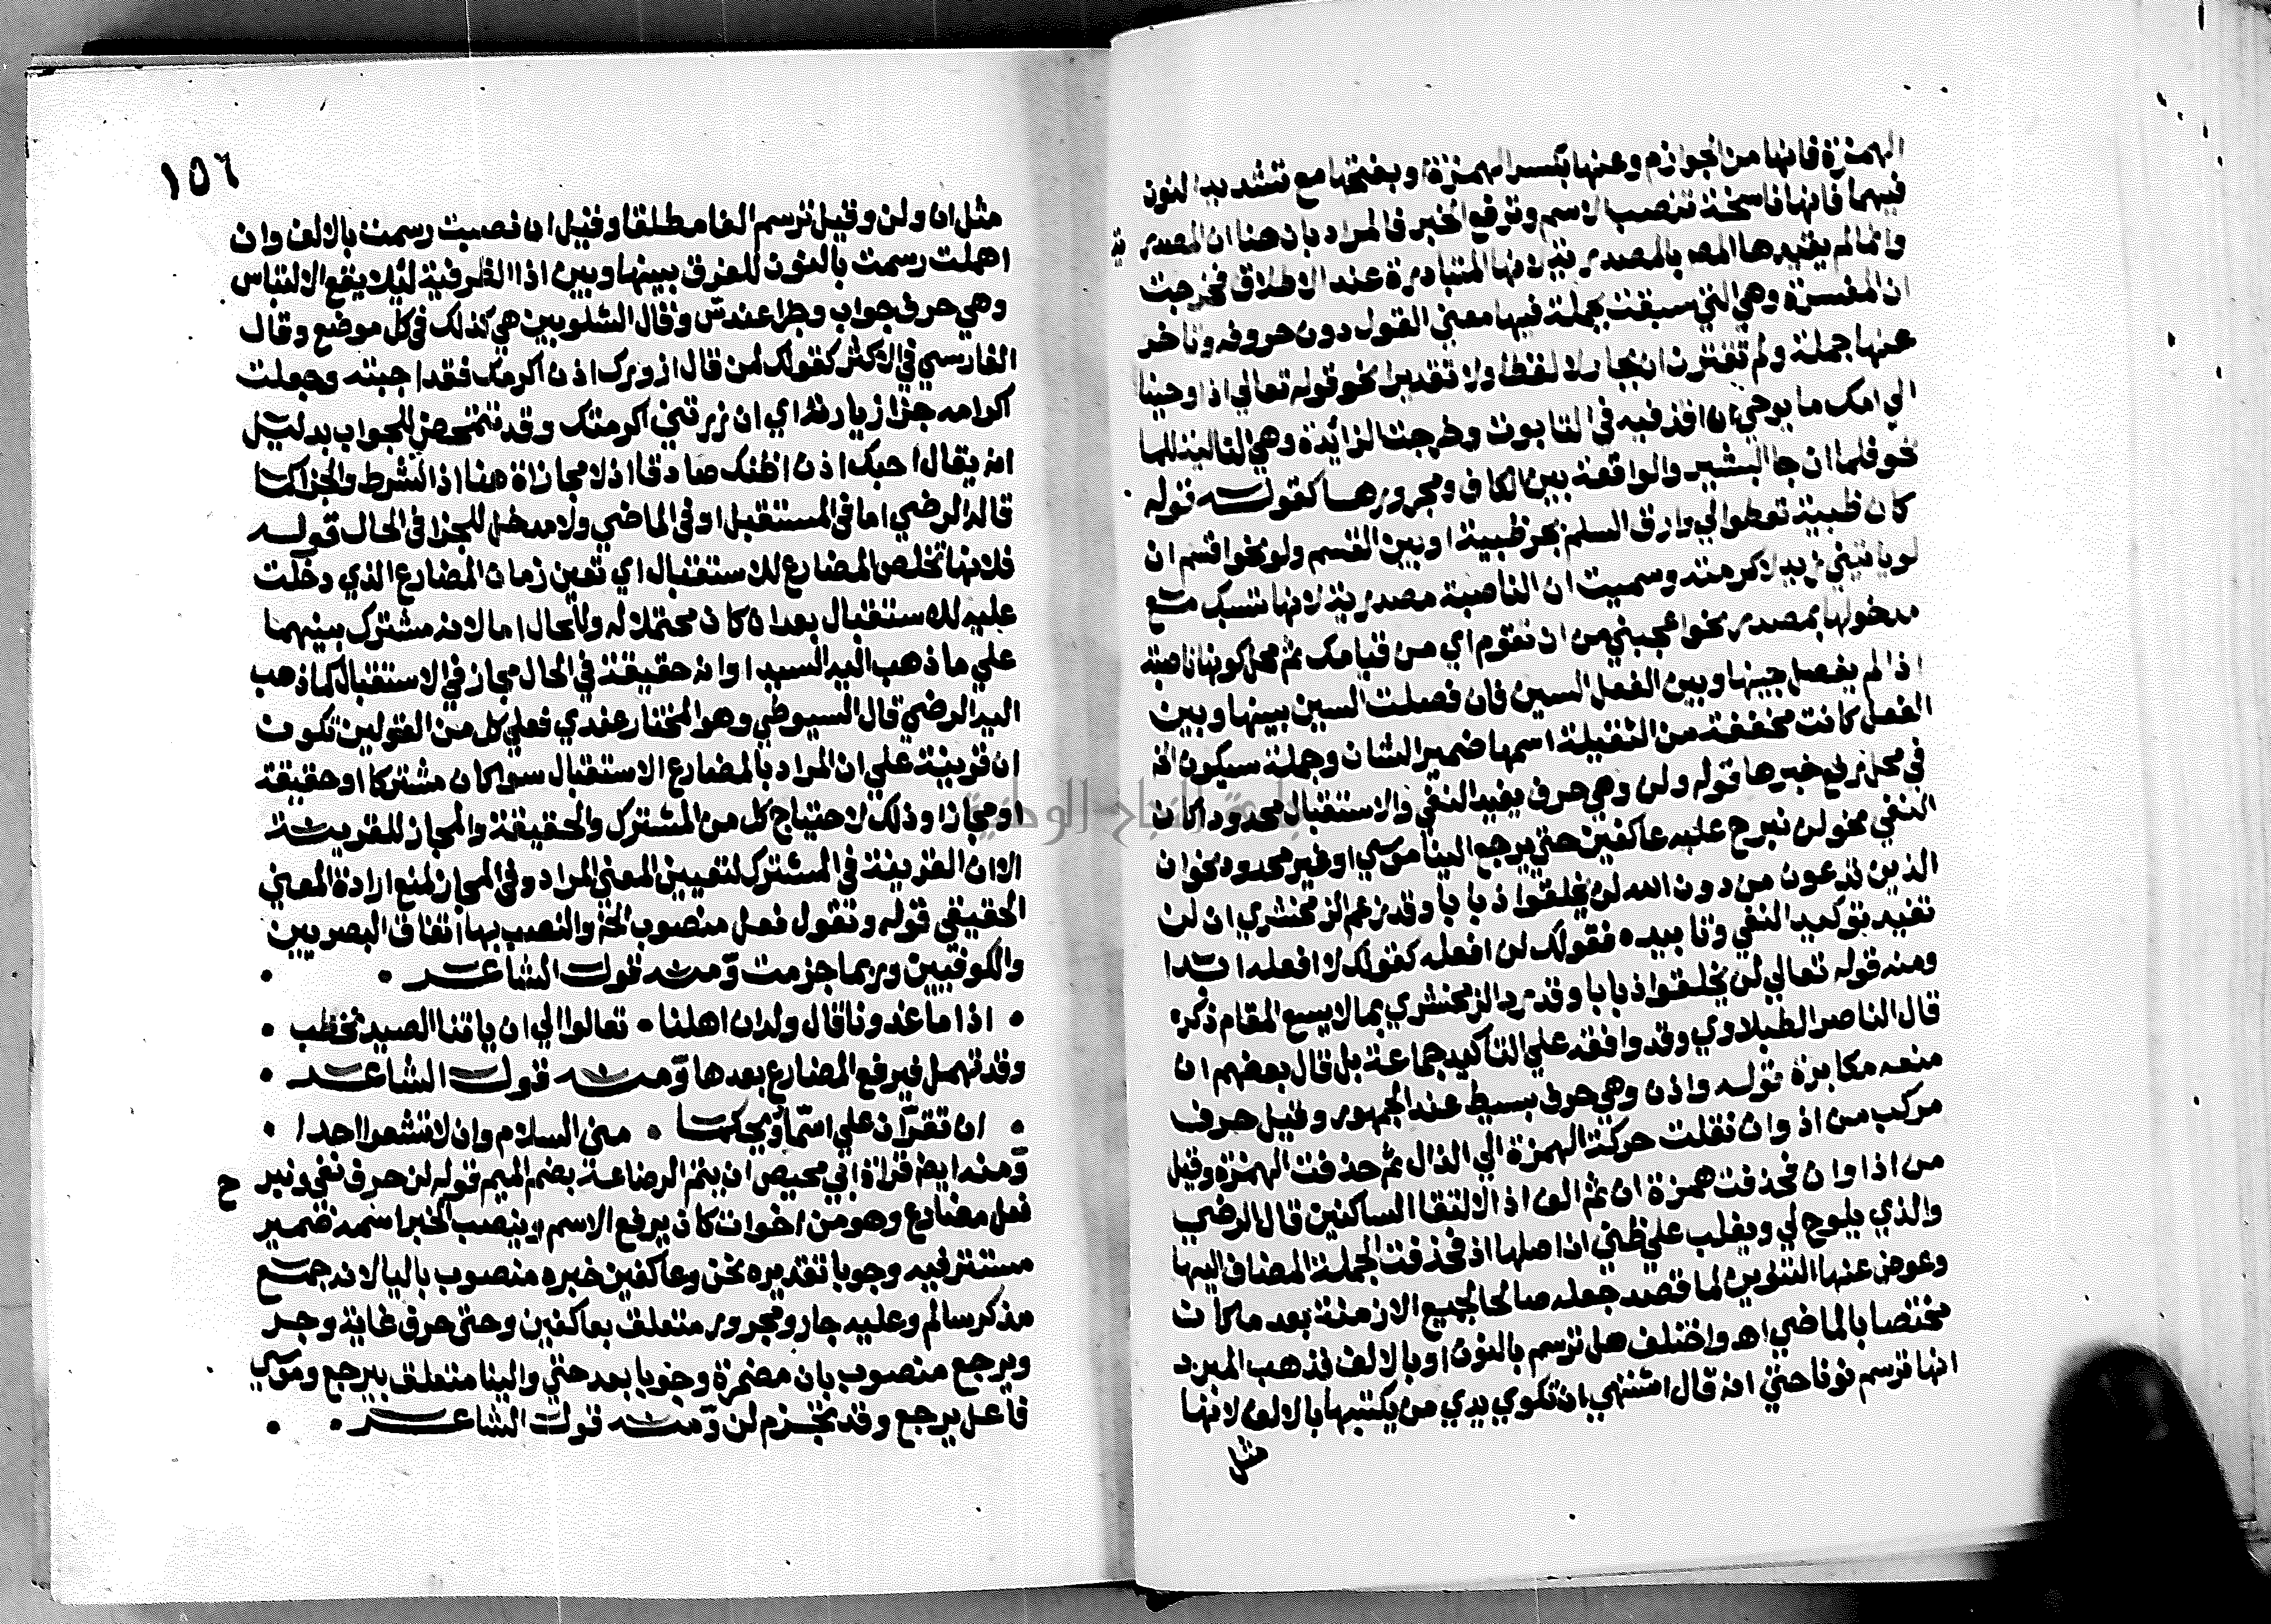 الهمزة فانها من الجوازم وعنها بكسر الهمزة او بفتحها مع تشديد النون
فيهما فانها ناسخة تنصب الاسم وترفع الخبر فالمراد بان هنا ان المصدرية
وانما لم يقيدها المص بالمصدرية لانها المتبادرة عند الاطلاق فخرجت
ان المفسرة وهي التي سبقت بجملة فيها معني القول دون حروفه وتاخر
عنها جملة ولم تقترن ان بجار لا لفظا ولا تقديرا نحو قوله تعالي اذ اوحينا
الي امك ما يوحي ان اقذفيه في التابوت وخرجت الزائدة وهي التالية للما
نحو فلما ان جا البشير والواقعة بين الكاف ومجرورها كقوله قوله
كان ظبية تعطوا الي وارق السلم بجر ظبية او بين القسم ولو نحو اقسم ان
لو ياتيني زيد لاكرمته وسميت ان الناصبة مصدرية لانها تنسبك مع
مدخولها بمصدر نحو اعجبني من ان تقوم اي من قيامك ثم محل كونها ناصبة
اذا لم يفصل بينها وبين الفعل السين فان فصلت السين بينها وبين
الفعل كانت مخففة من الثقيلة اسمها ضمير الشان وجملة سيكون الخ
في محل رفع خبرها قوله ولن وهي حرف يفيد النفي والاستقبال محدودا كان
النفي نحو لن نبرح عليه عاكفين حتي يرجع الينا موسي او غير محدود نحو ان
الذين تدعون من دون الله لن يخلقوا ذبابا وقد زعم الزمخشري ان لن
تفيد توكيد النفي وتابيده فقولك لن افعله كقولك لا افعله ابدا
ومنه قوله تعالي لن يخلقوا ذبابا وقد رد الزمخشري بما لا يسع المقام ذكره
قال الناصر الطبلاوي وقد وافقه علي التاكيد جماعة بل قال بعضهم ان
منعه مكابرة قوله واذن وهي حرف بسيط عند الجمهور وقيل حرف
مركب من اذ وان نقلت حركة الهمزة الي الذال ثم حذفت الهمزة وقيل
من اذا وان فحذفت همزة ان ثم الف اذا لالتقا الساكنين قال الرضي
والذي يلوح لي ويغلب علي ظني ان اصلها اذ فحذفت الجملة المضاف اليها
وعوض عنها التنوين لما قصد جعله صالحا لجميع الازمنة بعد ما كان
مختصا بالماضي اهـ واختلف هل ترسم بالنون او بالالف فذهب المبرد
انها ترسم نونا حتي انه قال اشتهي ان تكوي يدي من يكتبها بالالف لانها
مثل
١٥٦
مثل ان ولن وقيل ترسم الفا مطلقا وقيل ان نصبت رسمت بالالف وان
اهملت رسمت بالنون للفرق بينها وبين اذا الظرفية لئلا يقع الالتباس
وهي حرف جواب وجزا عند س وقال الشلوبين هي كذلك في كل موضع وقال
الفارسي في الاكثر كقولك لمن قال ازورك اذن اكرمك فقد اجبته وجعلت
اكرامه جزا زيارته اي ان زرتني اكرمتك وقد تتمحض للجواب بدليل
انه يقال احبك اذن اظنك صادقا اذ لا مجازاة هنا اذ الشرط والجزا كما
قاله الرضي اما في المستقبل او في الماضي ولا مدخل للجزا في الحال قوله
فلانها تخلص المضارع للاستقبال اي تعين زمان المضارع الذي دخلت
عليه للاستقبال بعد ان كان محتملا له وللحال اما لانه مشترك بينهما
علي ما ذهب اليه السيد او انه حقيقة في الحال مجاز في الاستقبال كما ذهب
اليه الرضي قال السيوطي وهو المختار عندي فعلي كل من القولين تكون
ان قرينة علي ان المراد بالمضارع الاستقبال سوا كان مشتركا او حقيقة
او مجازا وذلك لاحتياج كل من المشترك والحقيقة والمجاز للقرينة
الا ان القرينة في المشترك لتعيين المعني المراد وفي المجاز لمنع ارادة المعني
الحقيقي قوله وتقول فعل منصوب الخ والنصب بها اتفاق البصريين
والكوفيين وربما جزمت ومنه قول الشاعر
اذا ما غدونا قال ولدان اهلنا • تعالوا الي ان ياتنا الصيد نحطب
وقد تهمل فيرفع المضارع بعدها ومنه قول الشاعر
ان تقرآن علي اسما ويحكما • مني السلام وان لا تشعرا احدا
ومنه ايضا قراة ابي محيصن ان يتم الرضاعة بضم الميم قوله لن حرف نفي ونبرح
فعل مضارع وهو من اخوات كان يرفع الاسم وينصب الخبر اسمه ضمير
مستتر فيه وجوبا تقديره نحن وعاكفين خبره منصوب باليا لانه جمع
مذكر سالم وعليه جار ومجرور متعلق بعاكفين وحتي حرف غاية وجر
ويرجع منصوب بان مضمرة وجوبا بعد حتي والينا متعلق بيرجع وموسي
فاعل يرجع وقد تجزم لن ومنه قول الشاعر
جامعة النجاح الوطنية